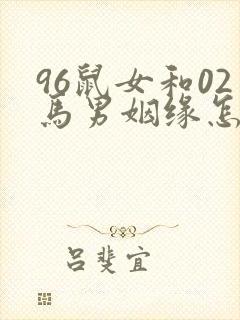 96鼠女和02
马男姻缘怎
吕斐宜